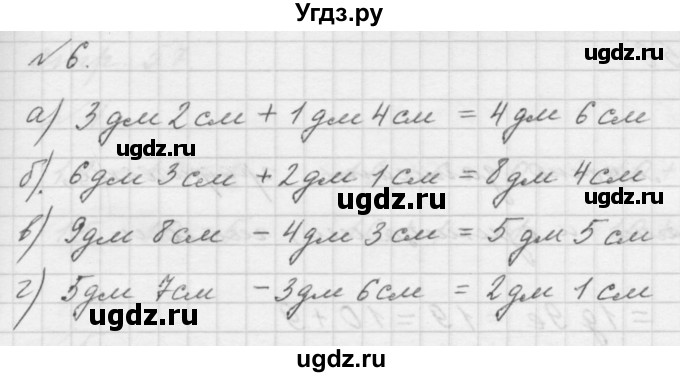 Угдз.ру
№ 6.
ugdz.ru
ugdz.ru
а) 3 дм 2 см + 1 дм 4 см = 4 дм 6 см
б) 6 дм 3 см + 2 дм 1 см = 8 дм 4 см
ugdz.ru
ugdz.ru
в) 9 дм 8 см - 4 дм 3 см = 5 дм 5 см
г) 5 дм 7 см - 3 дм 6 см = 2 дм 1 см
ugdz.ru
ugdz.ru
ugdz.ru